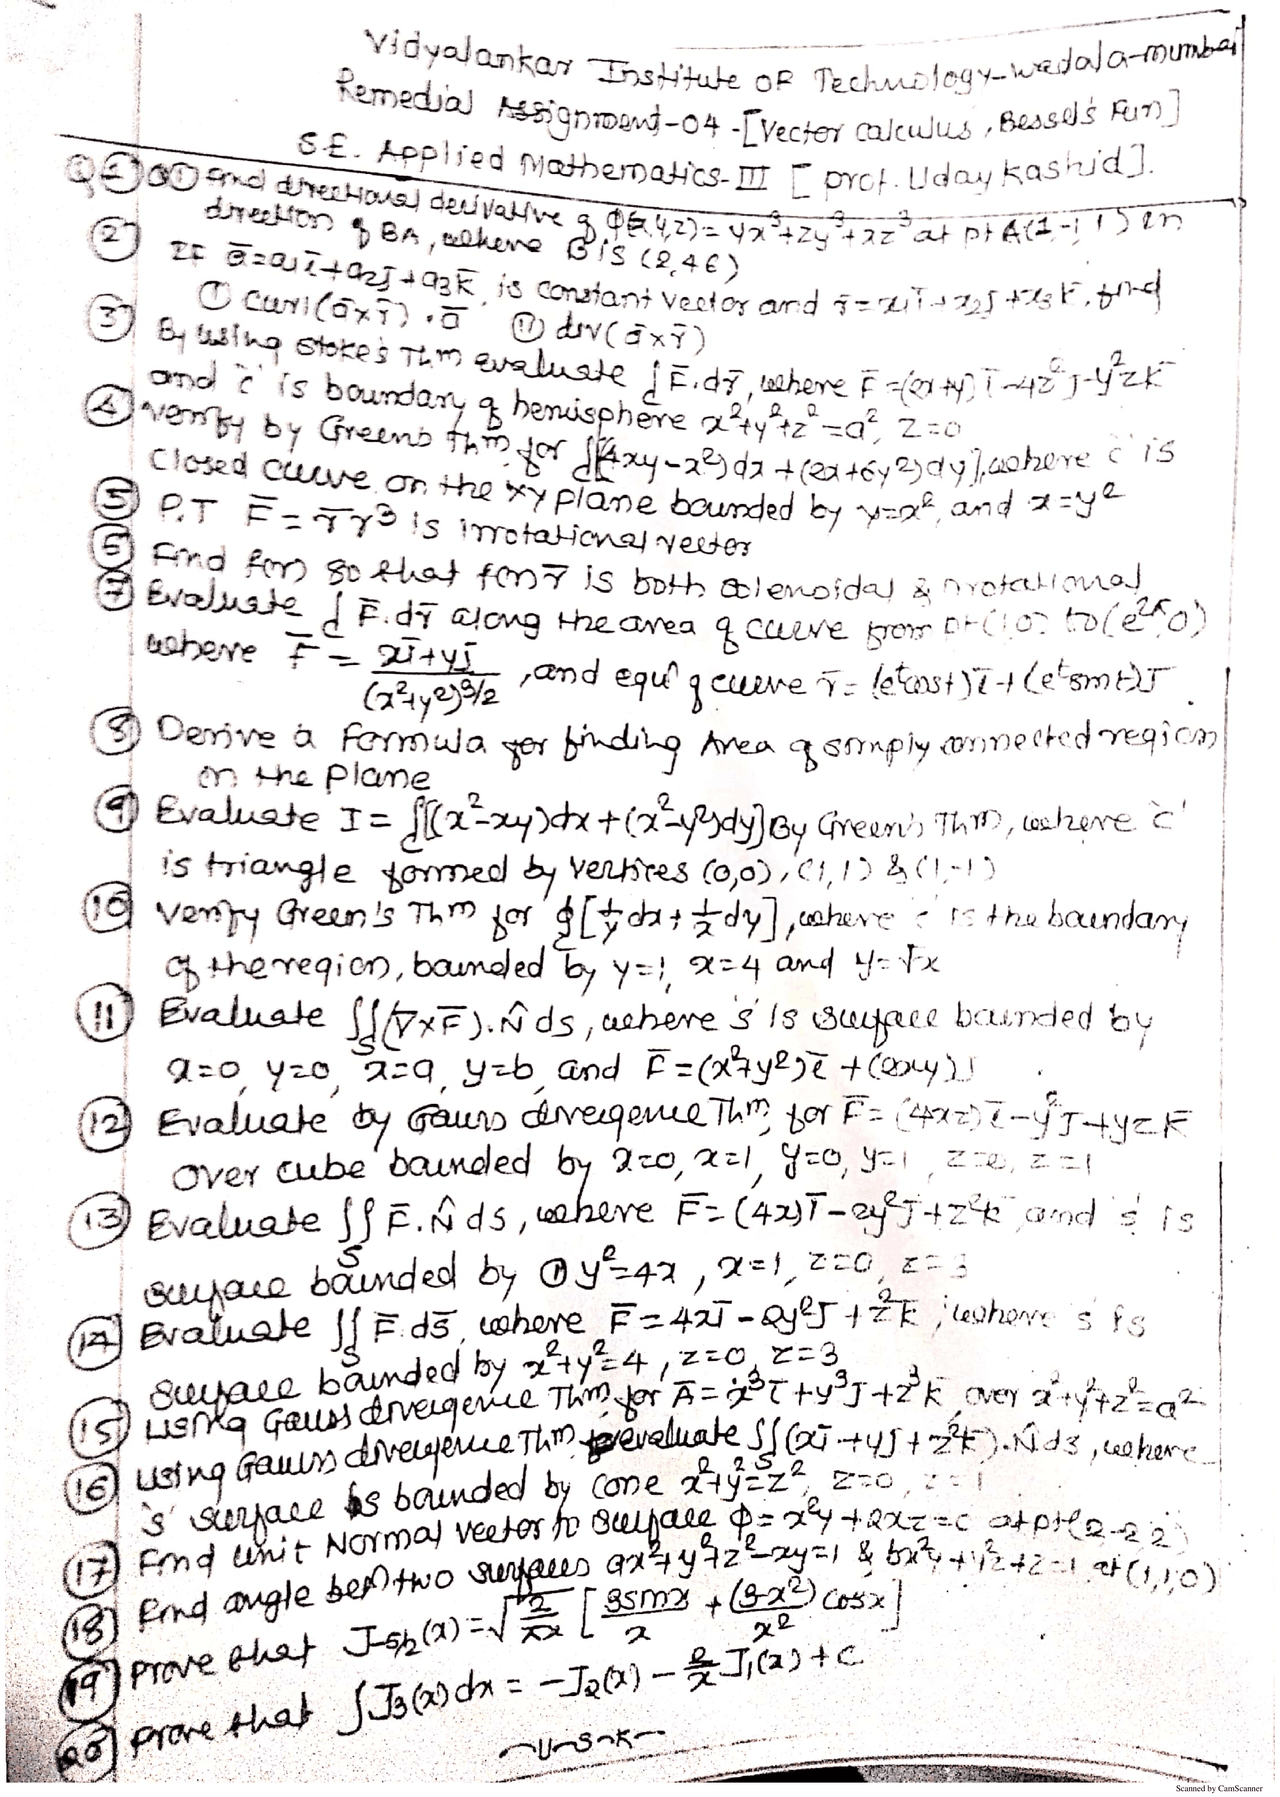 Vidyalankar Institute of Technology-wadala-mumbai
Remedial Assignment-04 -[Vector calculus, Bessel's Fun]
S.E. Applied Mathematics-III [prof. Uday Kashid].
① Find directional derivative of φ(x,y,z)=yx³+zy³+xz³ at pt A(1,-1,1) in
direction of BA, where B is (2,4,6)
② If ā=a₁ī+a₂j̄+a₃k̄, is constant vector and r̄=x₁ī+x₂j̄+x₃k̄, find
① curl(ā×r̄).ā ⑪ div(ā×r̄)
③ By using stoke's Thm evaluate ∫_C F̄.dr̄, where F̄=(2x+y)ī-4z²j̄-y²zk̄
and 'c' is boundary of hemisphere x²+y²+z²=a², z=0
④ verify by Green's Thm, for ∫_C[(4xy-x²)dx+(2x+6y²)dy], where 'c' is
closed curve on the xy plane bounded by y=x², and x=y²
⑤ P.T F̄=r̄r³ is irrotational vector
⑥ Find f(r) so that f(r)r̄ is both solenoidal & irrotational
⑦ Evaluate ∫_C F̄.dr̄ along the area of curve from pt(1,0) to(e^2π,0)
where F̄ = (xī+yj̄)/(x²+y²)^3/2, and equⁿ of curve r̄=(eᵗcost)ī+(eᵗsint)j̄
⑧ Derive a formula for finding Area of simply connected region
in the plane
⑨ Evaluate I=∫_C[(x²-xy)dx+(x²-y²)dy] By Green's Thm, where 'c'
is triangle formed by vertices (0,0), (1,1) & (1,-1)
⑩ Verify Green's Thm for ∮_C[1/y dx+1/x dy], where 'c' is the boundary
of the region, bounded by y=1, x=4 and y=√x
⑪ Evaluate ∬_S(∇×F̄).N̂ ds, where 's' is surface bounded by
x=0, y=0, x=a, y=b, and F̄=(x²+y²)ī+(2xy)j̄
⑫ Evaluate by Gauss divergence Thm, for F̄=(4xz)ī-y²j̄+yzk̄
over cube bounded by x=0, x=1, y=0, y=1, z=0, z=1
⑬ Evaluate ∬_S F̄.N̂ ds, where F̄=(4x)ī-2y²j̄+z²k̄ and 's' is
surface bounded by ① y²=4x, x=1, z=0, z=3
⑭ Evaluate ∬_S F̄.ds̄, where F̄=4xī-2y²j̄+z²k̄, where 's' is
surface bounded by x²+y²=4, z=0, z=3
⑮ Using Gauss divergence Thm, for Ā=x³ī+y³j̄+z³k̄, over x²+y²+z²=a²
⑯ using Gauss divergence Thm evaluate ∬_S(xī+yj̄+z²k̄).N̂ ds, where
's' surface is bounded by cone x²+y²=z², z=0, z=1
⑰ Find unit Normal vector to surface φ=x²y+2xz=c at pt(2,-2,2)
⑱ Find angle betⁿ two surfaces ax²+y²+z²-xy=1 & bx²y+y²z+z=1 at (1,1,0)
⑲ Prove that J₋₅/₂(x)=√(2/πx) [3sinx/x + (3-x²)/x² cosx]
⑳ Prove that ∫J₃(x)dx = -J₂(x) - 2/x J₁(x)+c
U-S-K
Scanned by CamScanner